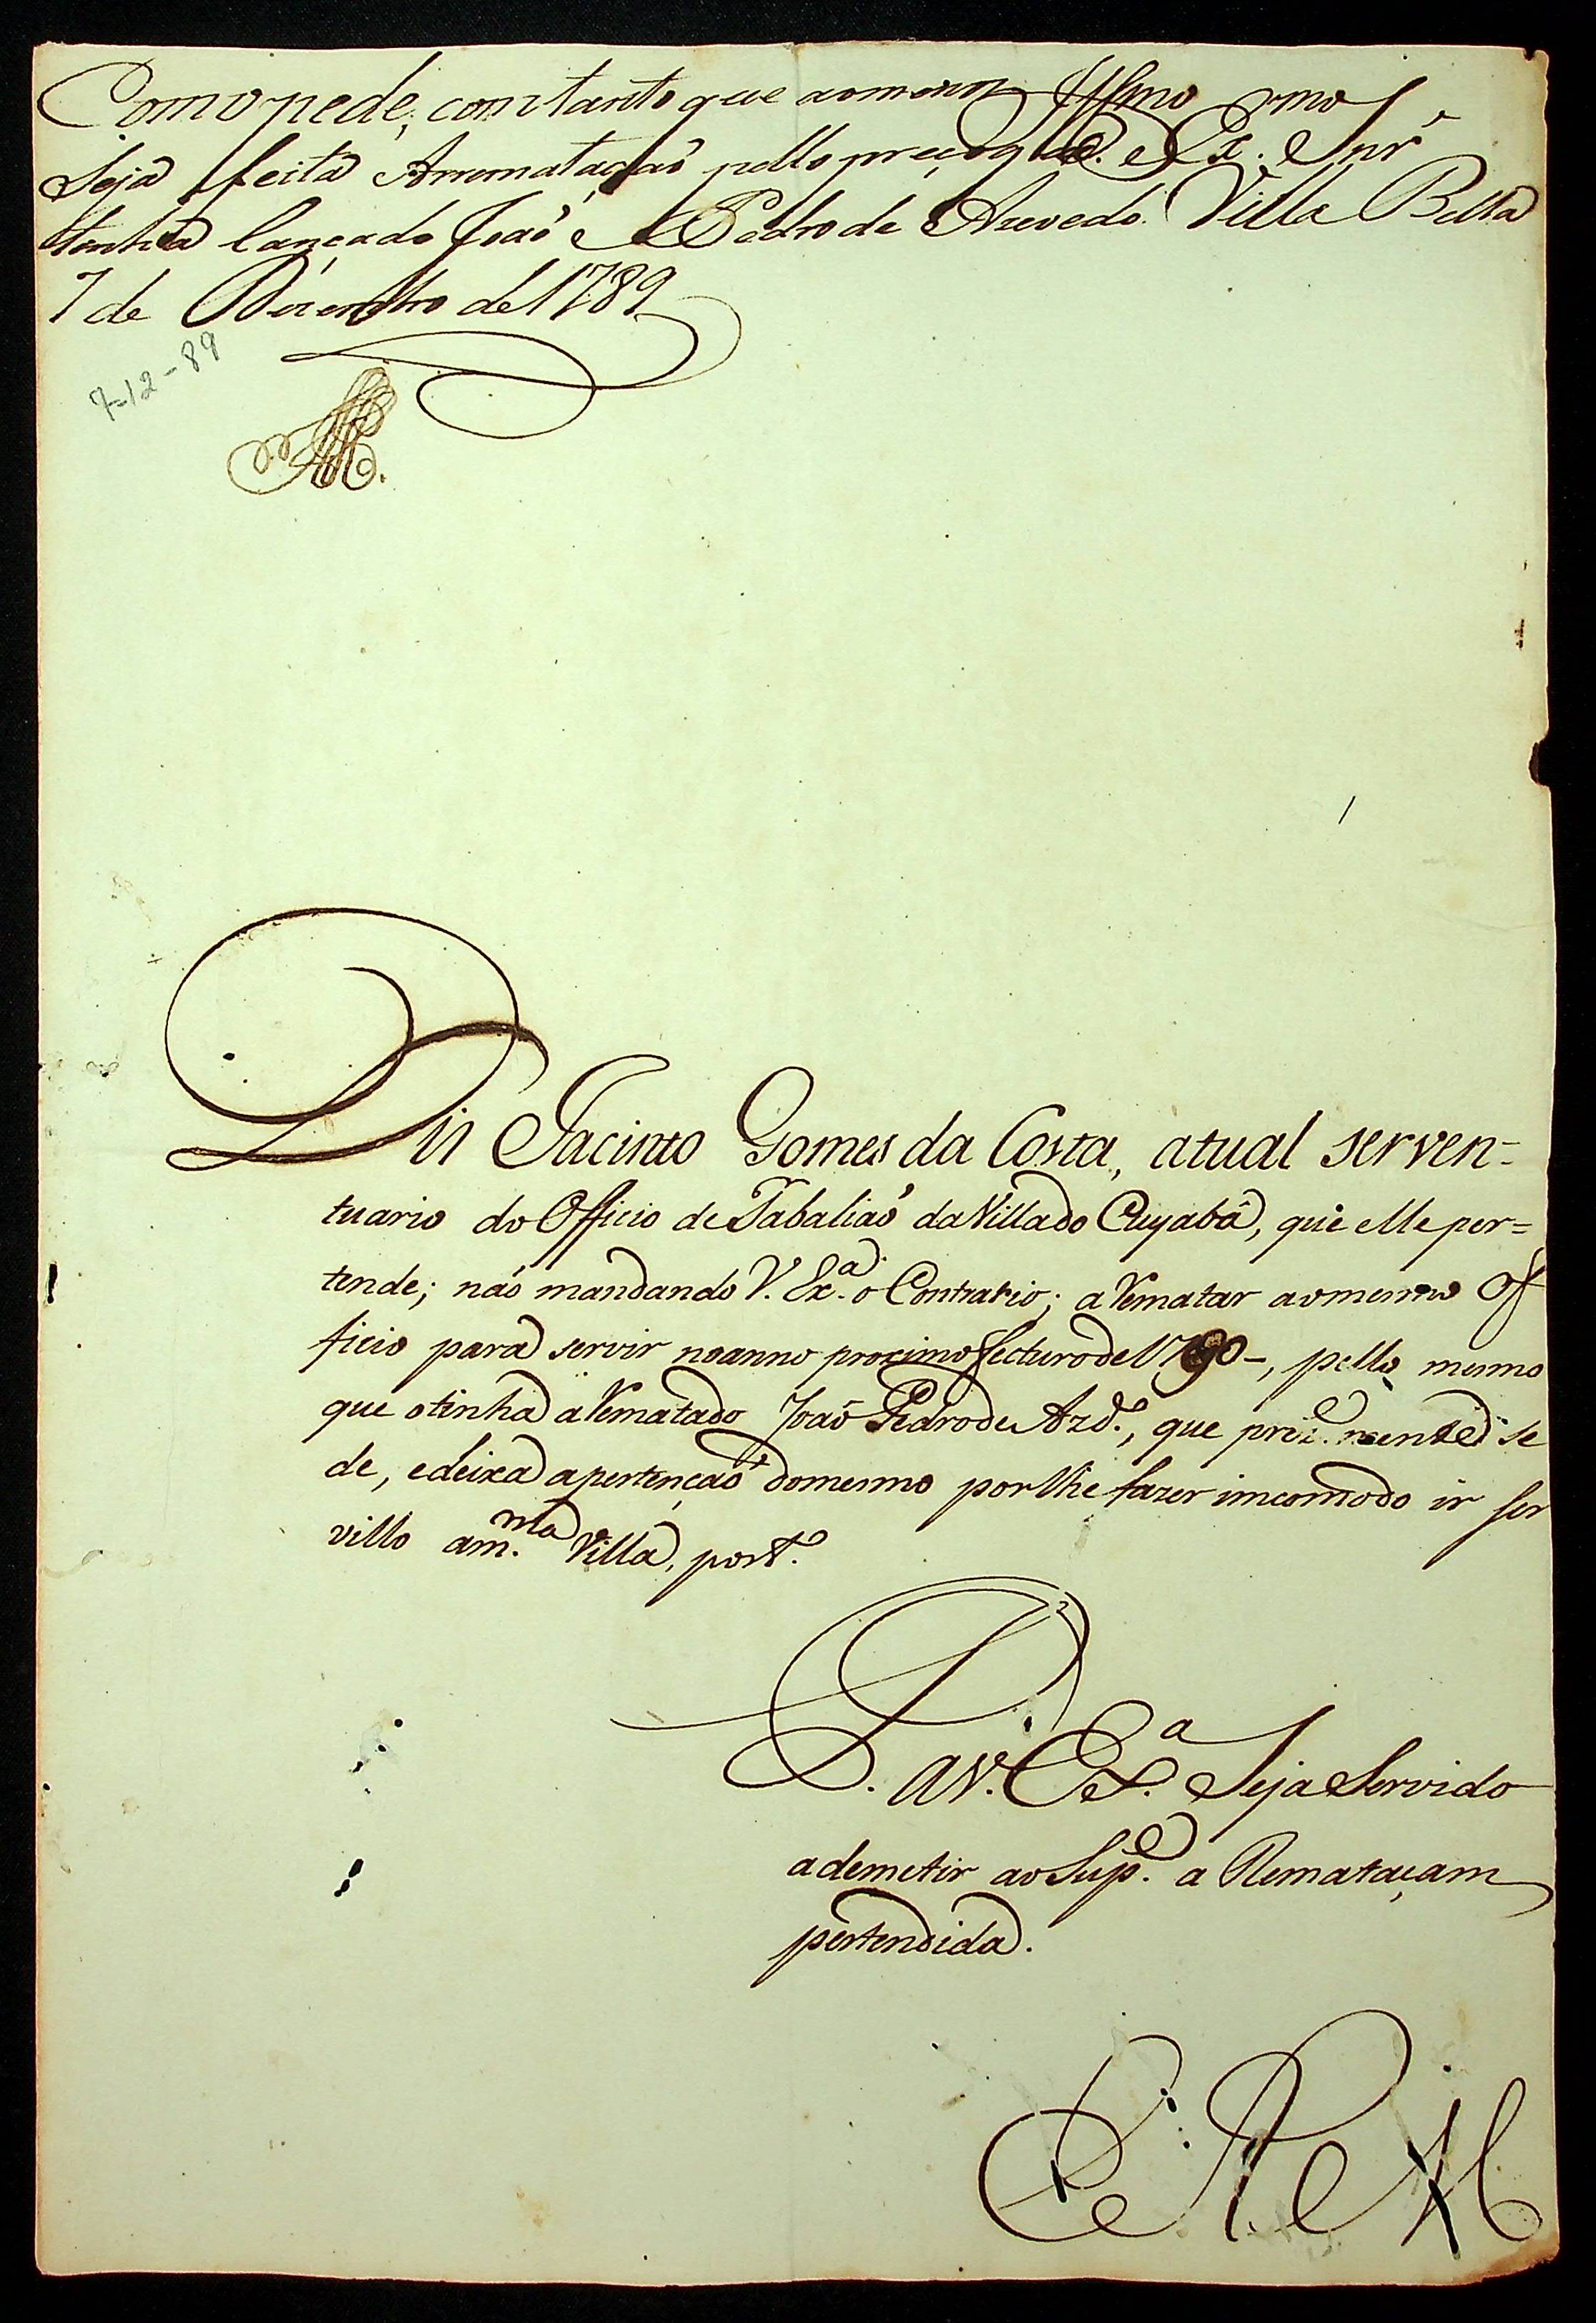 Como pede, com tanto que ao menos Illmo e Ex.mo Snr'
Seja feita Arrematação pello preço q̃
tinha lançado João Pedro de Azevedo. Villa Bella
7 de Dezembro de 1789
7-12-89
Dis Jacinto Gomes da Costa, atual serven-
tuario do Officio de Tabaliaõ da Villa do Cuyabâ, que elle per=
tende; naõ mandando V. Ex.a o Contrario; a Rematar ao mesmo Of
ficio para servir no anno proximo fecturo de 1790-, pello mesmo
que o tinha a Rematado Joaõ Pedro de Azd.o, que prez.mente se
de, e deixa a pertençaõ do mesmo por lhe fazer imcomodo ir ser
villo a m.ma Villa, port.o
P. a V. Ex.a Seja Servido
ademetir ao Sup.e a Remataçam
pertendida.
E. R. M.